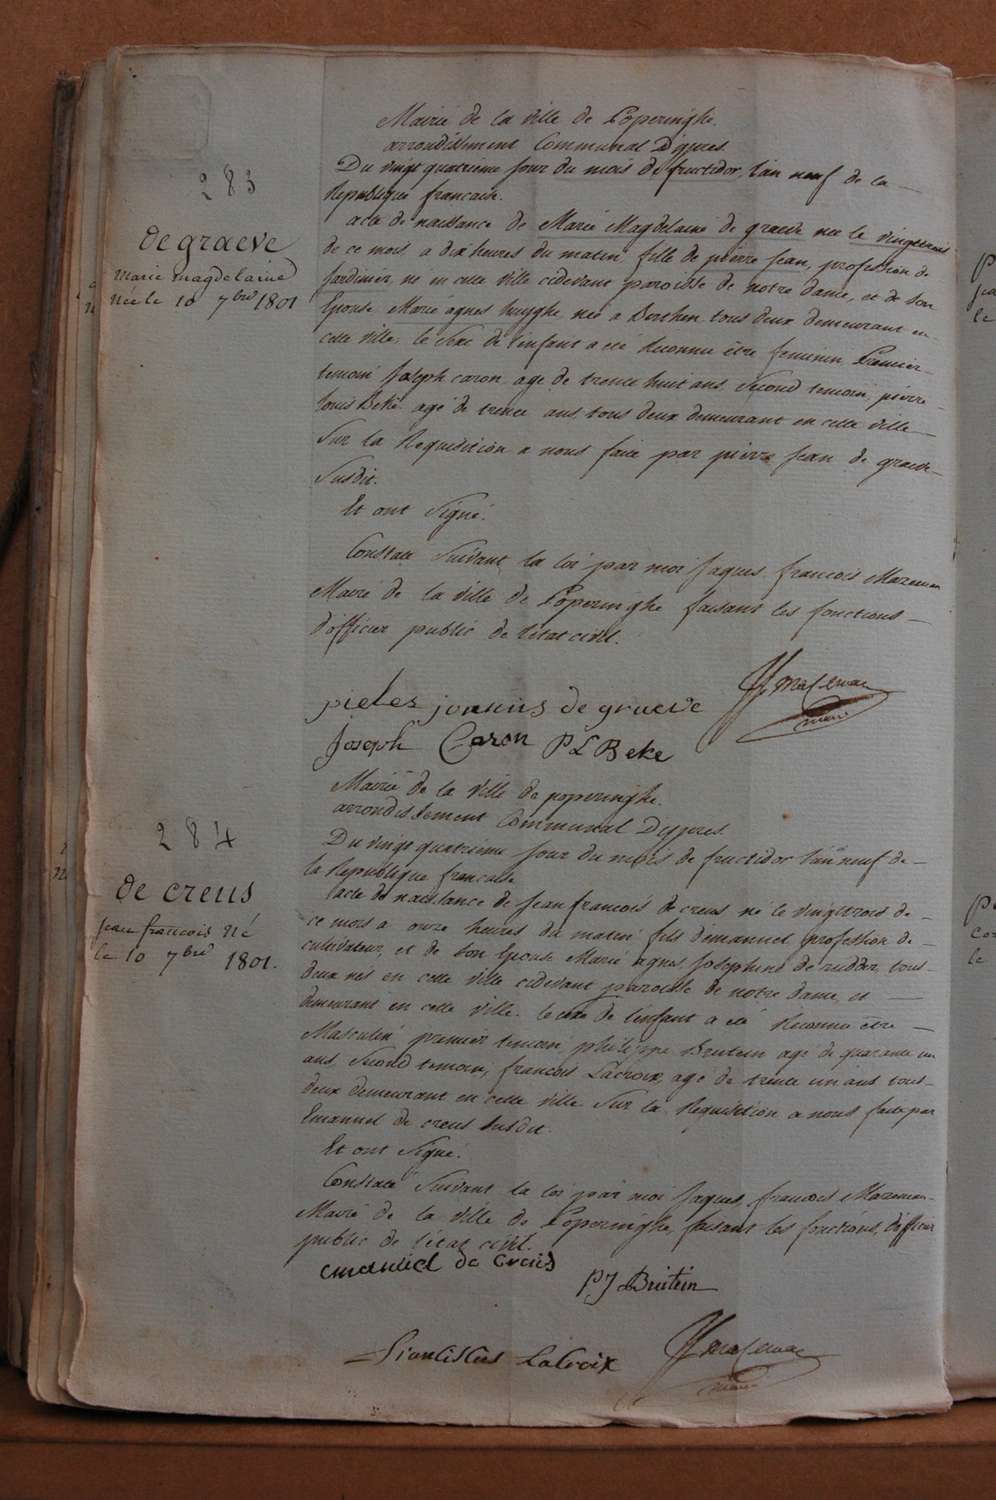 283
de graeve
marie magdelaine
née le 10 7bre 1801
Mairie de la ville de Poperinghe.
arrondissement Communal D'ypres.
Du vingt quatrieme jour du mois de fructidor, l'an neuf de la
Republique francaise.
acte de naissance de Marie Magdelaine de graeve née le vingttrois
de ce mois, a dix heures du matin, fille de pierre jean, profession de
Jardinier, né en cette ville cidevant paroisse de notre dame, et de son
Epouse Marie agnes huyghe, née a Berthen tous deux demeurant en
cette ville, le Sexe de l'enfant a été Reconnu être feminin Premier
temoin Joseph caron agé de trente huit ans, Second temoin pierre
louis Beke agé de trente ans tous deux demeurant en cette ville
Sur la Requisition a nous faite par pierre jean de graeve
Susdit.
Et ont Signé.
Constaté Suivant la loi par moi Jaques francois Mazeman
Maire de la ville de Poperinghe faisant les fonctions
d'officier public de l'état civil.
pieter joannis de graeve
Joseph Caron P L Beke
maire
284
de creus
jean francois né
le 10 7bre 1801.
Mairie de la ville de poperinghe.
arrondissement Communal D'ypres.
Du vingt quatrieme jour du mois de fructidor l'an neuf de
la Republique francaise
l'acte de naissance de jean francois de creus né le vingttrois de
ce mois a onze heures du matin fils d'emanuel profession de
cultivateur, et de son Epouse Marie agnes Josephine de rudder, tous
deux nés en cette ville cidevant paroisse de notre dame, et
demeurant en cette ville. le sexe de l'enfant a été Reconnu être
Masculin premier temoin philippe Brutein agé de quarante un
ans, Second temoin, francois Lacroix, agé de trente un ans tous
deux demeurant en cette ville Sur la Requisition a nous faite par
Emanuel de creus susdit.
Et ont Signé.
Constaté Suivant la loi par moi Jaques francois Mazeman
Maire de la ville de Poperinghe, faisant les fonctions, d'officier
public de l'état civil.
emanuel de Creus
P J Brutein
Lacroix
maire